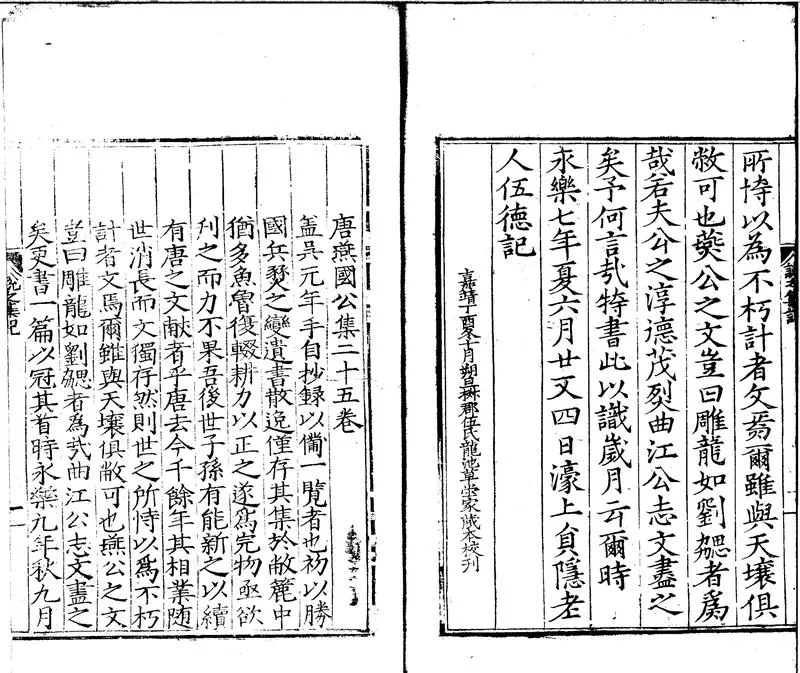 所恃以為不朽計者文焉爾雖與天壤俱
敝可也燕公之文豈曰雕龍如劉勰者為
哉若夫公之淳德茂烈曲江公志文盡之
矣予何言哉特書此以識歲月云爾時
永樂七年夏六月廿又四日濠上貞隱老
人伍德記
嘉靖丁酉冬十月朔旦椒郡伍氏龍池草堂家藏本校刊
唐燕國公集二十五卷
盖吳元年手自抄録以備一覽者也初以勝
國兵燹之變遺書散逸僅存其集於敝簏中
猶多魚魯復輟耕力以正之遂為完物亟欲
刊之而力不果吾後世子孫有能新之以續
有唐之文献者乎唐去今千餘年其相業随
世消長而文獨存然則世之所恃以為不朽
計者文焉爾雖與天壤俱敝可也燕公之文
豈曰雕龍如劉勰者為哉曲江公志文盡之
矣更書一篇以冠其首時永樂九年秋九月